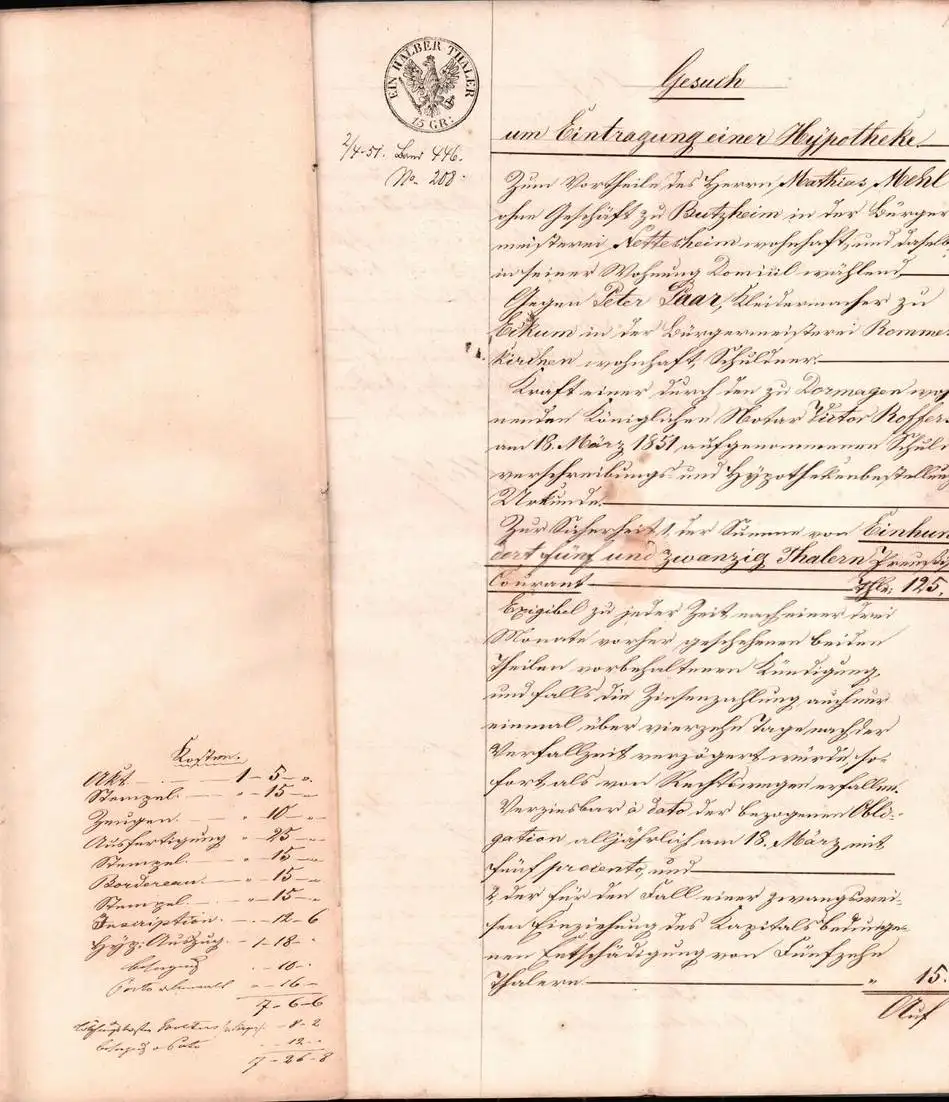 EIN HALBER THALER
15 GR:
2/4. 51. Band 446.
No. 208.
Gesuch
um Eintragung einer Hypotheke
Zum Vortheile des Herrn Mathias Mehl
ohne Geschäft zu Butzheim in der Bürger
meisterei Nettesheim wohnhaft, und daselb
in seiner Wohnung Domicil wählend
Gegen Peter Paar, Kleidermacher zu
Eckum in der Bürgermeisterei Romme
kirchen wohnhaft, Schuldner
Kraft einer durch den zu Dormagen woh
nenden Königlichen Notar Victor Roffer
am 18. März 1851 aufgenommenen Schul
verschreibungs- und Hypothekenbestellung
Urkunde.
Zur Sicherheit 1, der Summe von Einhun
dert fünf und zwanzig Thalern Preußi
Courant Thlr. 125.
Exigibel zu jeder Zeit nach einer drei
Monate vorher geschehenen beiden
Theilen vorbehaltenen Kündigung,
und falls die Zinsenzahlung auch nur
einmal über vierzehn Tage nach der
Verfallzeit verzögert würde, so-
fort als von Rechtswegen erfallen.
Verzinsbar a dato der bezogenen Obli-
gation alljährlich am 18. März mit
fünf procento, und
2, der für den Fall einer zwangswei-
sen Einziehung des Kapitals bedunge-
nen Entschädigung von Fünfzehn
Thalern " 15.
Auf
Kosten.
Akt. 1 - 5 - "
Stempel. " - 15 - "
Zeugen. " - 10 - "
Ausfertigung " - 25 - "
Stempel. " - 15 - "
Bordereau. " - 15 - "
Stempel. " - 15 - "
Inscription. - 12 - 6
Hyp: Auszug. - 1 - 18 - "
- 10 -
Porto - 16 -
7 - 6 - 6
- 8 - 2
- 12 -
7 - 26 - 8